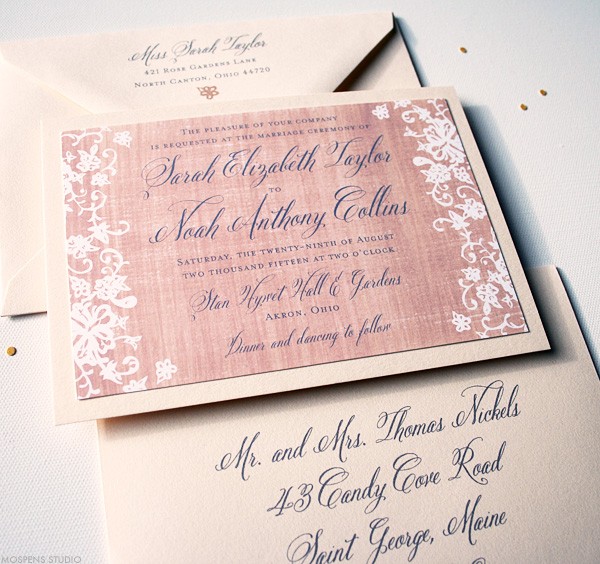 Miss Sarah Taylor
421 Rose Gardens Lane
North Canton, Ohio 44720
The pleasure of your company
is requested at the marriage ceremony of
Sarah Elizabeth Taylor
to
Noah Anthony Collins
Saturday, the twenty-ninth of August
two thousand fifteen at two o'clock
Stan Hywet Hall & Gardens
Akron, Ohio
Dinner and dancing to follow
Mr. and Mrs. Thomas Nickels
43 Candy Cove Road
Saint George, Maine
MOSPENS STUDIO